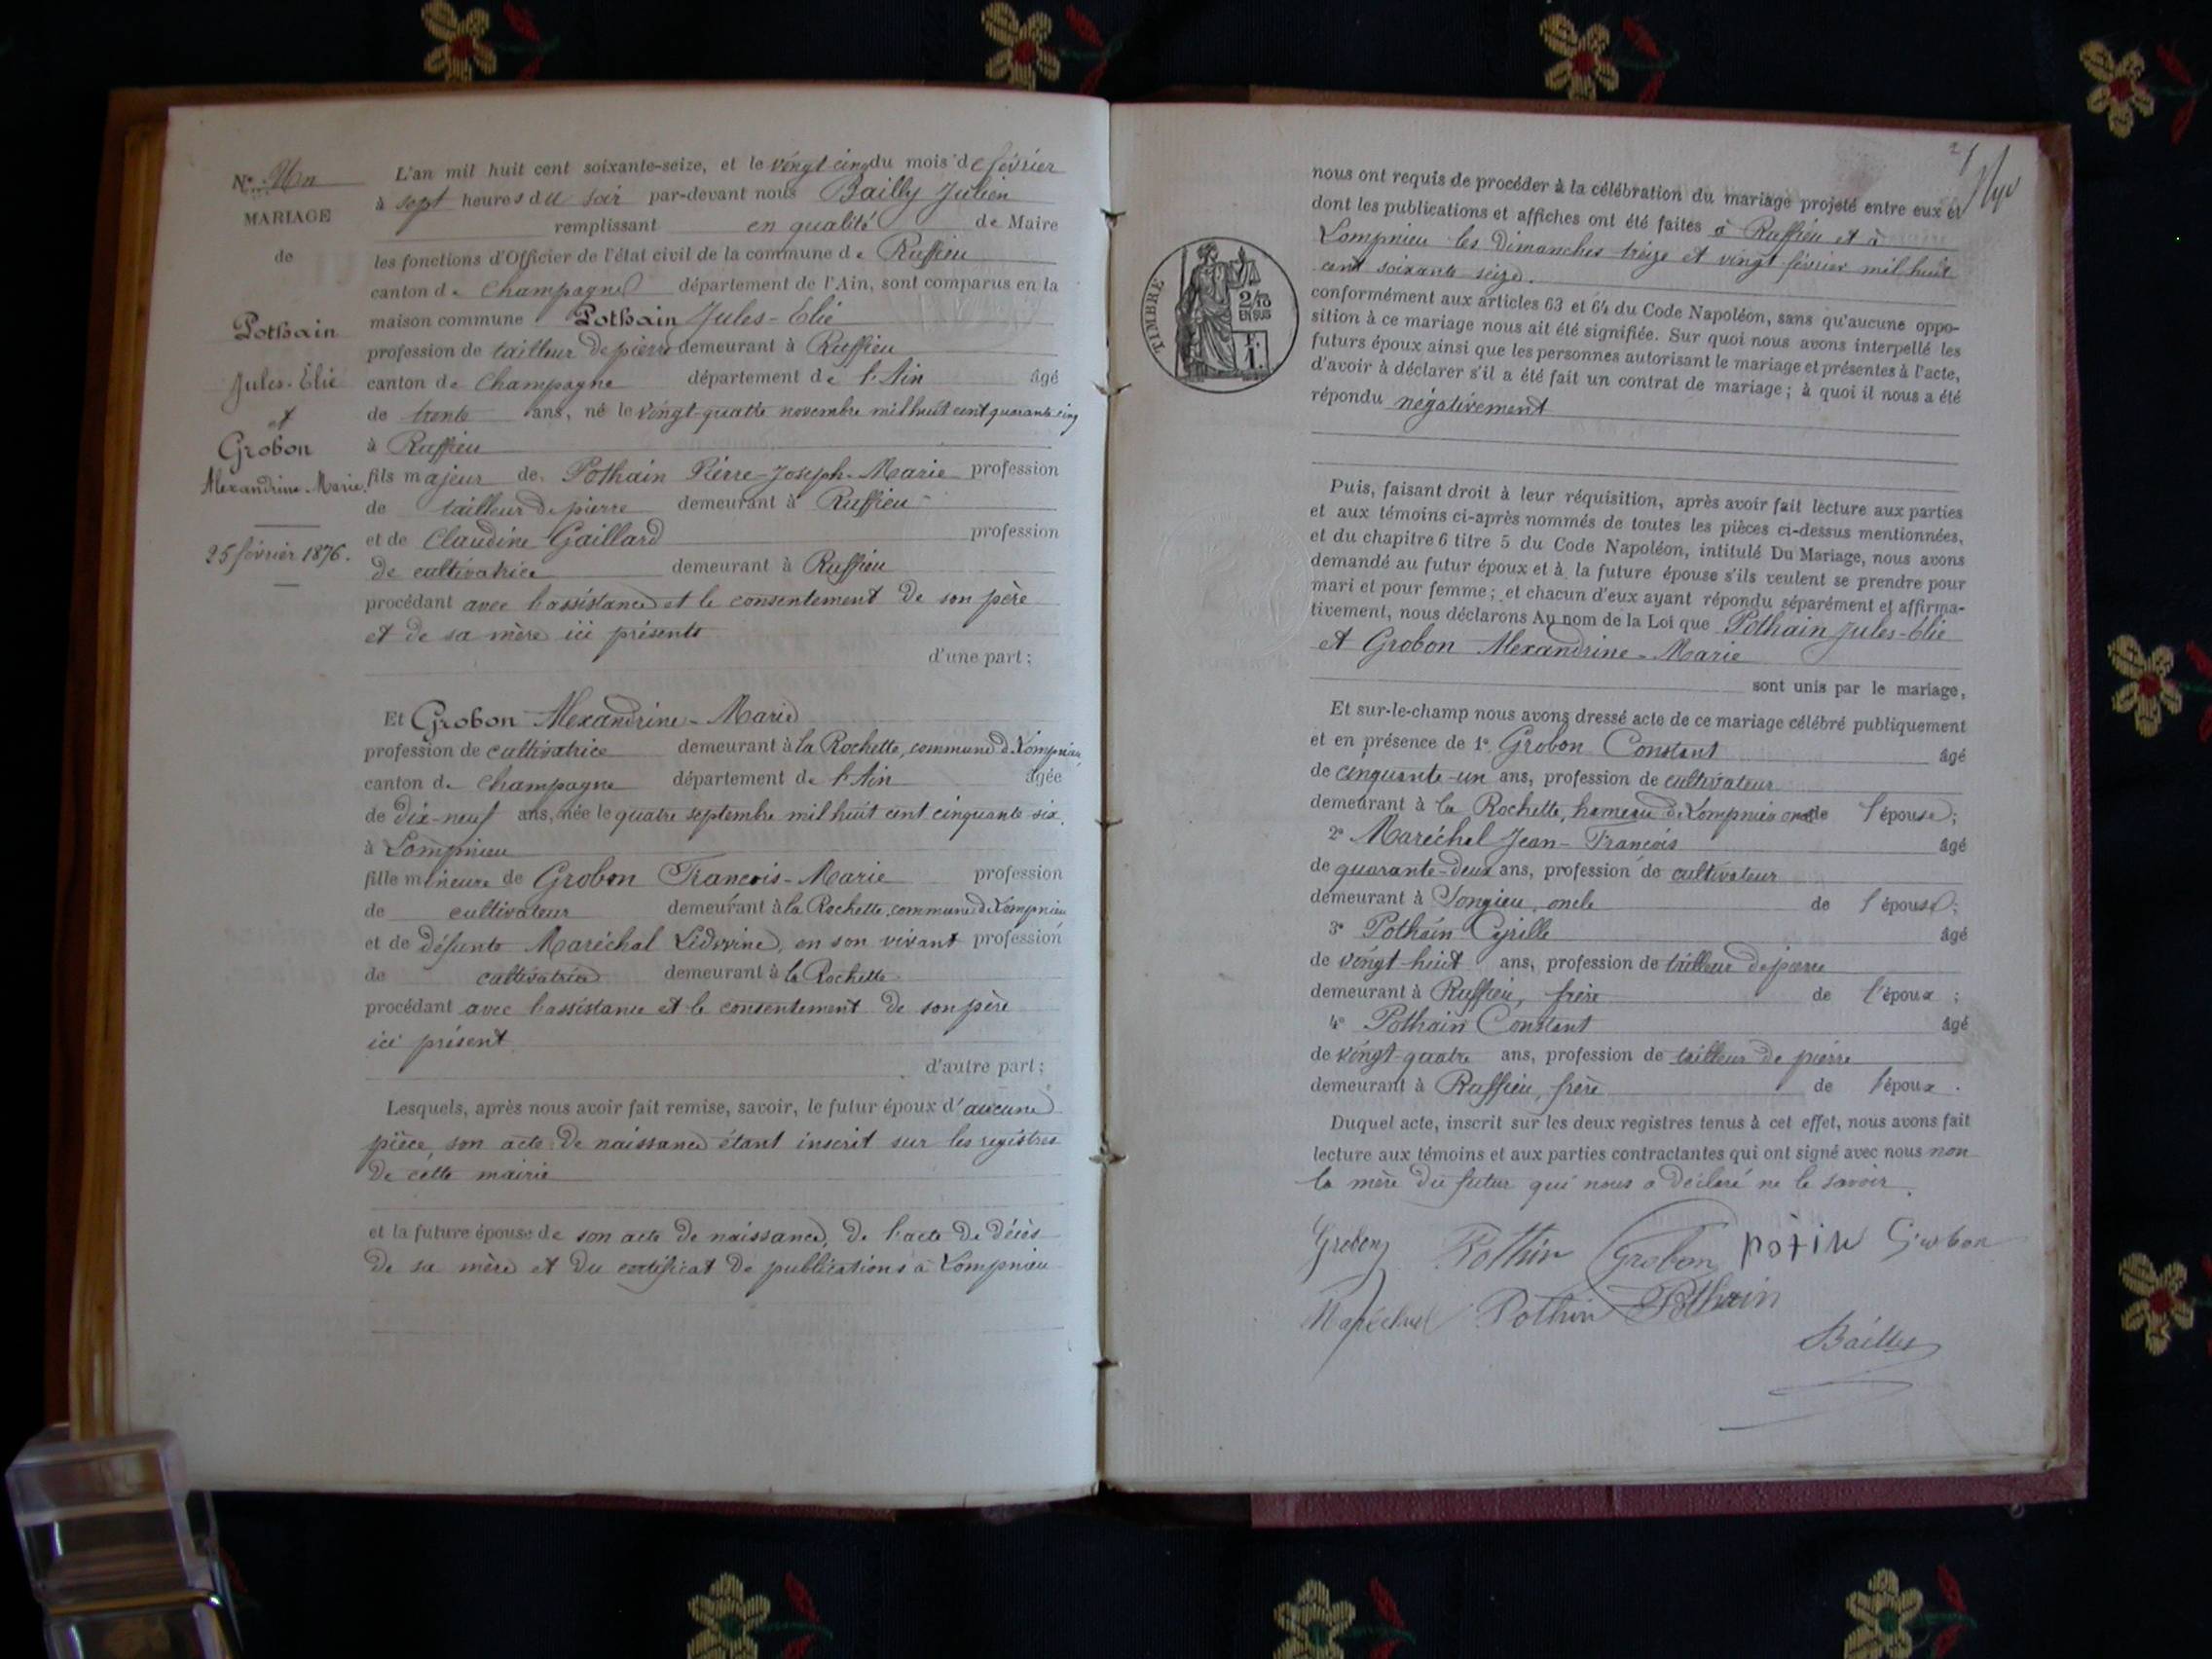 N° Un
MARIAGE
de
Pothain
Jules-Élie
et
Grobon
Alexandrine-Marie.
25 février 1876.
L'an mil huit cent soixante-seize, et le vingt cinq du mois de février
à sept heures du soir par-devant nous Bailly Julien
remplissant en qualité de Maire
les fonctions d'Officier de l'état civil de la commune de Ruffieu
canton de Champagne département de l'Ain, sont comparus en la
maison commune Pothain Jules-Élie
profession de tailleur de pierre demeurant à Ruffieu
canton de Champagne département de l'Ain âgé
de trente ans, né le vingt-quatre novembre mil huit cent quarante-cinq
à Ruffieu
fils majeur de Pothain Pierre-Joseph-Marie profession
de tailleur de pierre demeurant à Ruffieu
et de Claudine Gaillard profession
de cultivatrice demeurant à Ruffieu
procédant avec l'assistance et le consentement de son père
et de sa mère ici présents
d'une part;
Et Grobon Alexandrine-Marie
profession de cultivatrice demeurant à la Rochette, commune de Lompnieu,
canton de Champagne département de l'Ain âgée
de dix-neuf ans, née le quatre septembre mil huit cent cinquante-six,
à Lompnieu
fille mineure de Grobon François-Marie profession
de cultivateur demeurant à la Rochette, commune de Lompnieu
et de défunte Maréchal Ledvvine, en son vivant profession
de cultivatrice demeurant à la Rochette
procédant avec l'assistance et le consentement de son père
ici présent
d'autre part;
Lesquels, après nous avoir fait remise, savoir, le futur époux d'aucune
pièce, son acte de naissance étant inscrit sur les registres
de cette mairie
et la future épouse de son acte de naissance, de l'acte de décès
de sa mère et du certificat de publications à Lompnieu
2
TIMBRE
2/10
EN SUS
1 F.
nous ont requis de procéder à la célébration du mariage projeté entre eux et
dont les publications et affiches ont été faites à Ruffieu et à
Lompnieu les Dimanches treize et vingt février mil huit
cent soixante seize.
conformément aux articles 63 et 64 du Code Napoléon, sans qu'aucune oppo-
sition à ce mariage nous ait été signifiée. Sur quoi nous avons interpellé les
futurs époux ainsi que les personnes autorisant le mariage et présentes à l'acte,
d'avoir à déclarer s'il a été fait un contrat de mariage; à quoi il nous a été
répondu négativement
Puis, faisant droit à leur réquisition, après avoir fait lecture aux parties
et aux témoins ci-après nommés de toutes les pièces ci-dessus mentionnées,
et du chapitre 6 titre 5 du Code Napoléon, intitulé Du Mariage, nous avons
demandé au futur époux et à la future épouse s'ils veulent se prendre pour
mari et pour femme; et chacun d'eux ayant répondu séparément et affirma-
tivement, nous déclarons Au nom de la Loi que Pothain Jules-Élie
et Grobon Alexandrine-Marie
sont unis par le mariage,
Et sur-le-champ nous avons dressé acte de ce mariage célébré publiquement
et en présence de 1° Grobon Constant âgé
de cinquante-un ans, profession de cultivateur
demeurant à la Rochette, hameau de Lompnieu oncle de l'épouse;
2° Maréchal Jean-François âgé
de quarante-deux ans, profession de cultivateur
demeurant à Songieu, oncle de l'épouse;
3° Pothain Cyrille âgé
de vingt-huit ans, profession de tailleur de pierre
demeurant à Ruffieu, frère de l'époux;
4° Pothain Constant âgé
de vingt-quatre ans, profession de tailleur de pierre
demeurant à Ruffieu, frère de l'époux.
Duquel acte, inscrit sur les deux registres tenus à cet effet, nous avons fait
lecture aux témoins et aux parties contractantes qui ont signé avec nous non
la mère du futur qui nous a déclaré ne le savoir.
Grobon Pothin Grobon potin Grobon
Maréchal Pothin Pothain
Bailly